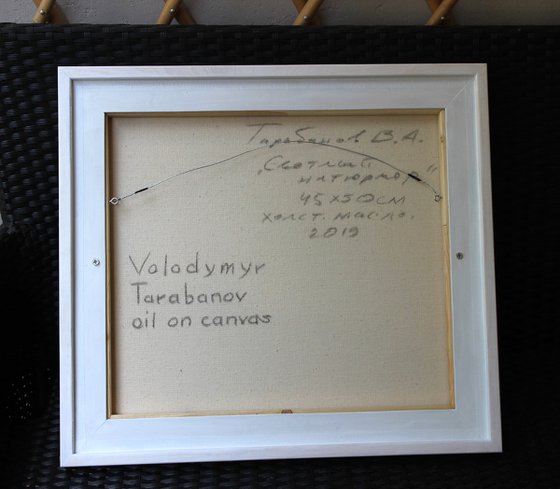 Тарабанов В.А.
„Светлый
натюрморт"
45x50см
холст. масло.
2019
Volodymyr
Tarabanov
oil on canvas